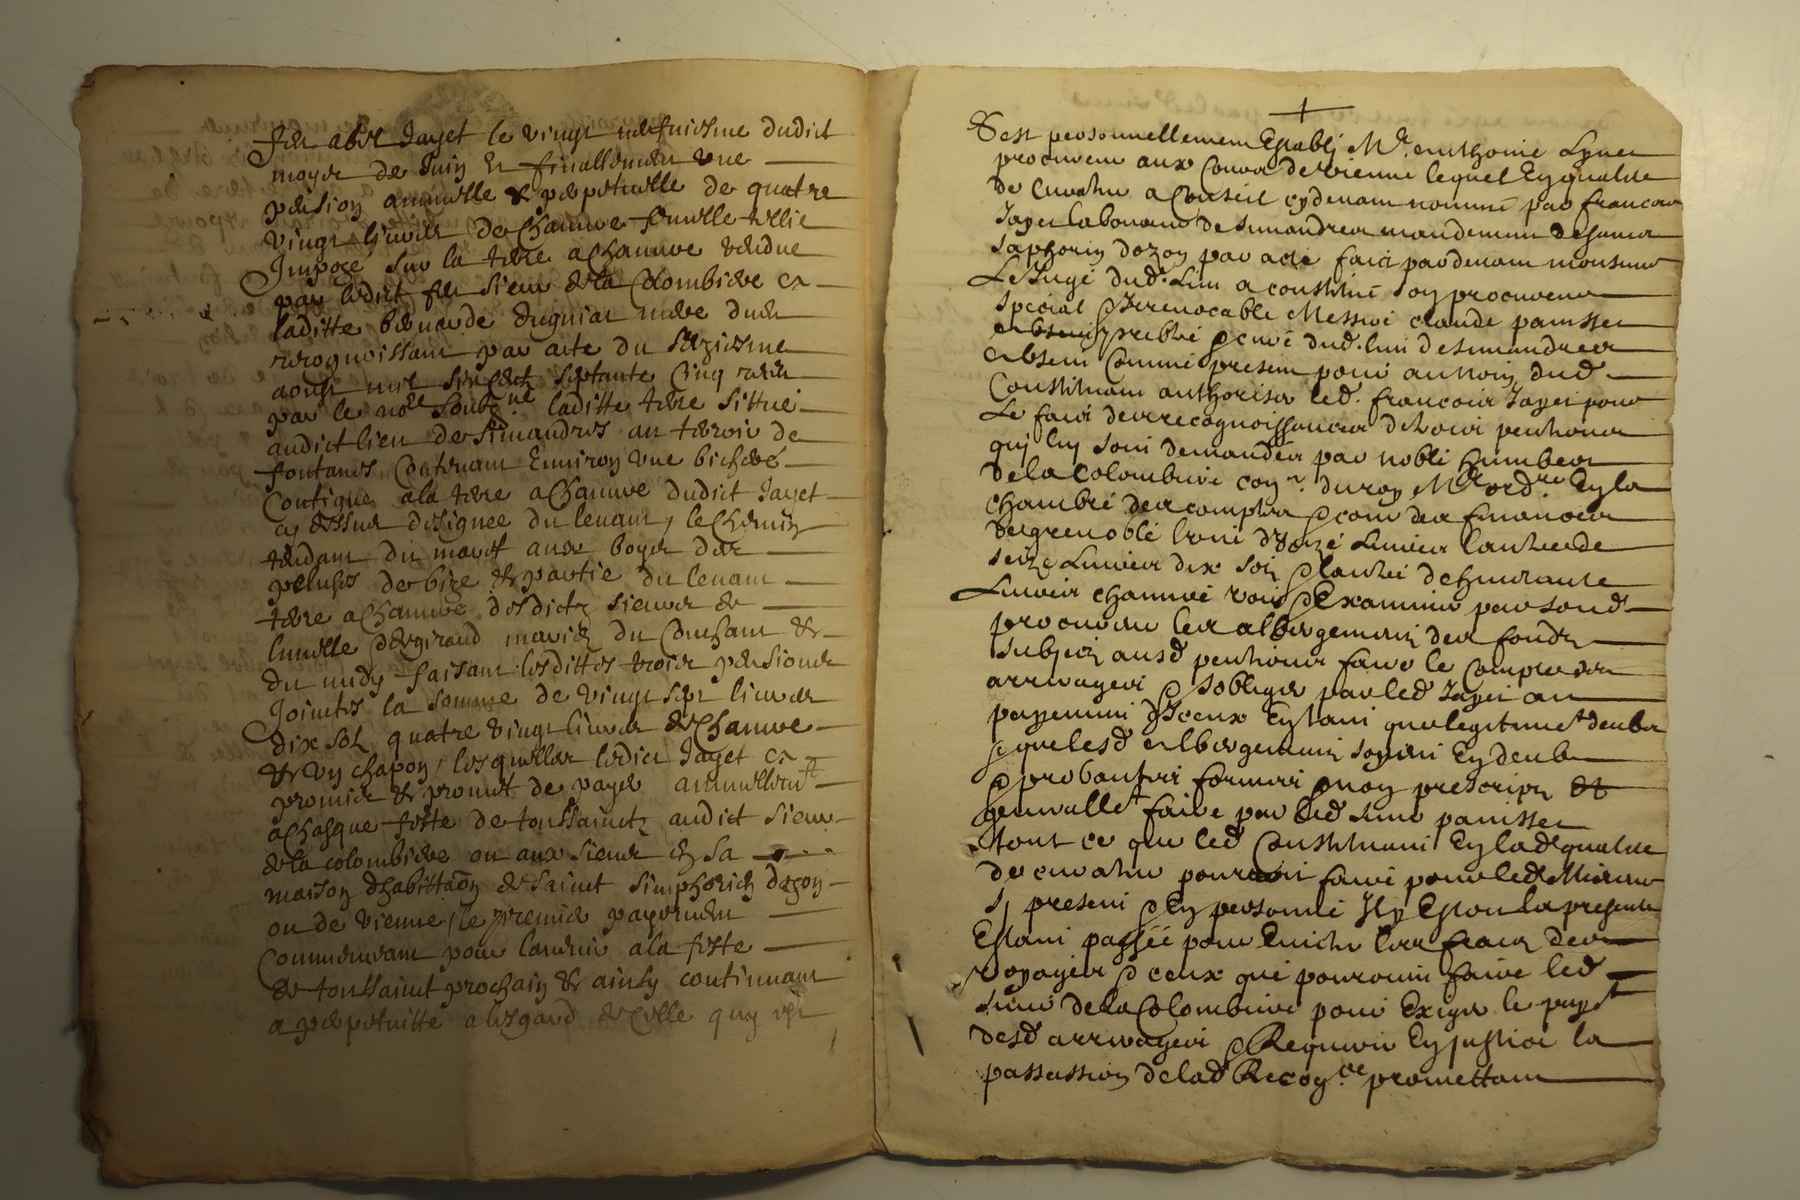 feu abel Jayet le vingt neufuiesme dudict
moys de Juin Et finallement une
pension annuelle & perpetuelle de quatre
vingt liures de Chanure femelle tellie
Imposé sur la terre a Chanure vendue
par ledict feu sieur de la Colombiere et
laditte bernarde mere dudit
recognoissant par acte du seziesme
aoust mil six centz septante cinq receu
par le no.re soubz.né laditte terre sittué
audict lieu de simandres au terroir de
fontanes Contenant Enuiron une bicheré
Contigue a la terre a Chanure dudict Jayet
cy dessus designee du leuant, le Chemin
tendant du aux boyes des
de bize & partie du leuant
terre a Chanure desdictz sieurs de
du Couchant &
du midy faisant lesdittes trois pensions
Jointes la somme de vingt sept liures
dix solz quatre vingt liures de Chanure
& un chapon, lesquelles ledict Jayet a
promis & promet de payer annuellemt
a Chasque feste de toussainctz audict sieur
de la colombiere ou aux siens en sa
maison dhabittaōn de sainct simphorien dozon
ou de vienne, le premier payement
Commencant pour lannee a la feste
de toussainct prochain & ainsy continuant
a perpetuitte a lesgard de Celle quy est
+
Sest personnellement Establi Mr. anthoine
procureur aux Cours de vienne lequel En qualite
de Curateur a Conseil cydeuant nommé par francois
Jayet laboureur de simandres mandement de sainct
saphorin dozon par acte faict pardeuant monsieur
Le Juge dud. lieu a constitué son procureur
special & Irreuocable Messire claude panisset
prebtre & curé dud. lieu de simandres
absent Comme present pour au nom dud
Constituant authoriser led. francois Jayet pour
Le faire des recognoissances de trois penthions
qui luy sont demandées par noble humbert
de la Colombiere con.r du roy Mr ord.re En la
chambre des comptes & cour des finances
de grenoble lune d'onze Liures lautre de
seize Liures dix solz & lautre de huictante
Liures chanure voir & Examiner par sond
procureur les albergementz des fondz
subjectz ausd penthions faire le Compte des
arreyrages & sobliger par led Jayet au
payement d'Iceux Estant que legitimet deubs
& que lesd albergementz soyent En deube
& probante forme & non prescriptz et
generallet faire par led sieur panisset
tout ce que led Constituant En lad qualite
de curateur pourroit faire pour led Mineur
sy present & En personne Il y Estoit la presente
Estant passée pour Euiter les fraix des
voyages & ceux que pourroint faire led
sieur de la Colombiere pour Exiger le payt
desd arreyrages & Requerir En justice la
passassion de lad Recogce promettant